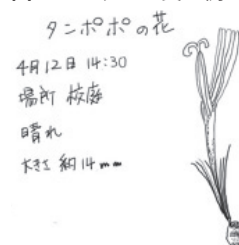 タンポポの花
4月12日 14:30
場所 校庭
晴れ
大きさ 約14mm